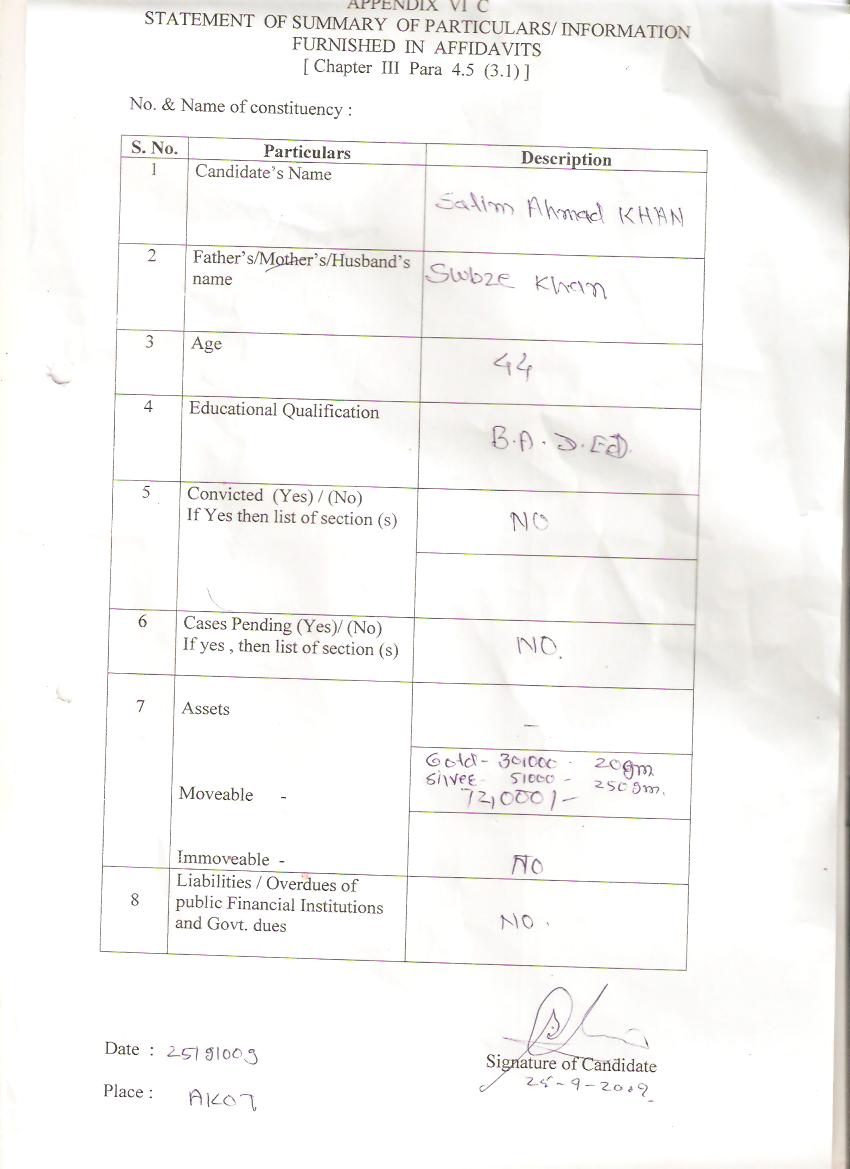 APPENDIX VI C
STATEMENT OF SUMMARY OF PARTICULARS/ INFORMATION
FURNISHED IN AFFIDAVITS
[ Chapter III Para 4.5 (3.1) ]
No. & Name of constituency :
S. No. Particulars Description
1 Candidate's Name
Salim Ahmad KHAN
2 Father's/Mother's/Husband's
name
Subze Khan
3 Age
44
4 Educational Qualification
B.A. D.ED.
5 Convicted (Yes) / (No)
If Yes then list of section (s)
NO
6 Cases Pending (Yes)/ (No)
If yes , then list of section (s)
NO.
7 Assets
–
Gold - 30,000 - 20gm
Silver 5,000 - 250gm.
Moveable - 72,000/-
Immoveable - NO
8 Liabilities / Overdues of
public Financial Institutions
and Govt. dues
NO.
Date : 25/9/009
Signature of Candidate
25-9-2009
Place : AKOT